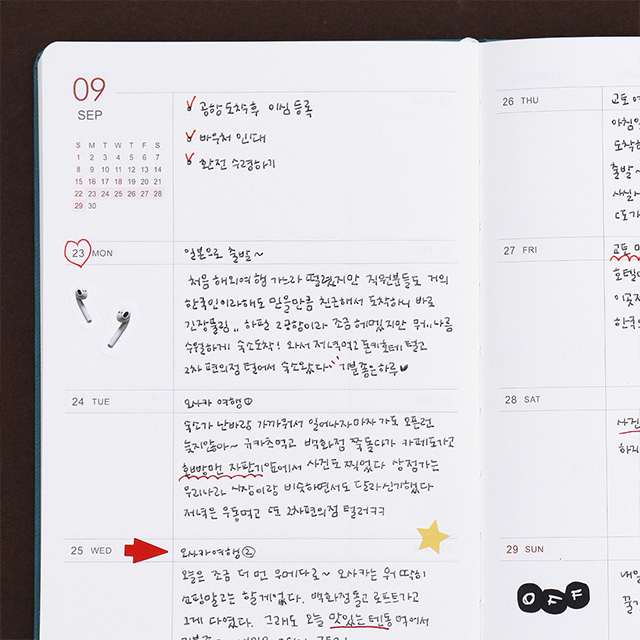 09
SEP
S M T W T F S
1 2 3 4 5 6 7
8 9 10 11 12 13 14
15 16 17 18 19 20 21
22 23 24 25 26 27 28
29 30
공항 도착후 이심 등록
바우처 인쇄
환전 수령하기
23 MON
일본으로 출발~
처음 해외여행 가느라 떨렸지만 직원분들도 거의
한국인이라해도 믿을만큼 친근해서 도착하니 바로
긴장풀림.. 하필 2공항이라 조금 헤맸지만 뭐..나름
수월하게 숙소도착! 와서 저녁먹고 돈키호테 털고
2차 편의점 털어서 숙소왔다 기분좋은하루
24 TUE
오사카 여행①
숙소가 난바랑 가까워서 일어나자마자 가도 오픈런
늦지않아~ 규카츠먹고 백화점 쭉돌다가 카페도가고
한방맨 자판기앞에서 사진도 찍었다 상점가는
우리나라 시장이랑 비슷하면서도 달라신기했다
저녁은 우동먹고 또 2차편의점 털러ㅋㅋ
25 WED
오사카여행②
오늘은 조금 더 먼 우메다로~ 오사카는 뭐 딱히
쇼핑말고는 할게없다. 백화점돌고 로프트가고
그게 다였다. 그래도 오늘 맛있는텐동먹어서
26 THU
교토 여
아침일
도착하
출발~
27 FRI
교토
호텔
한국
28 SAT
사진
하지
29 SUN
OFF
내일